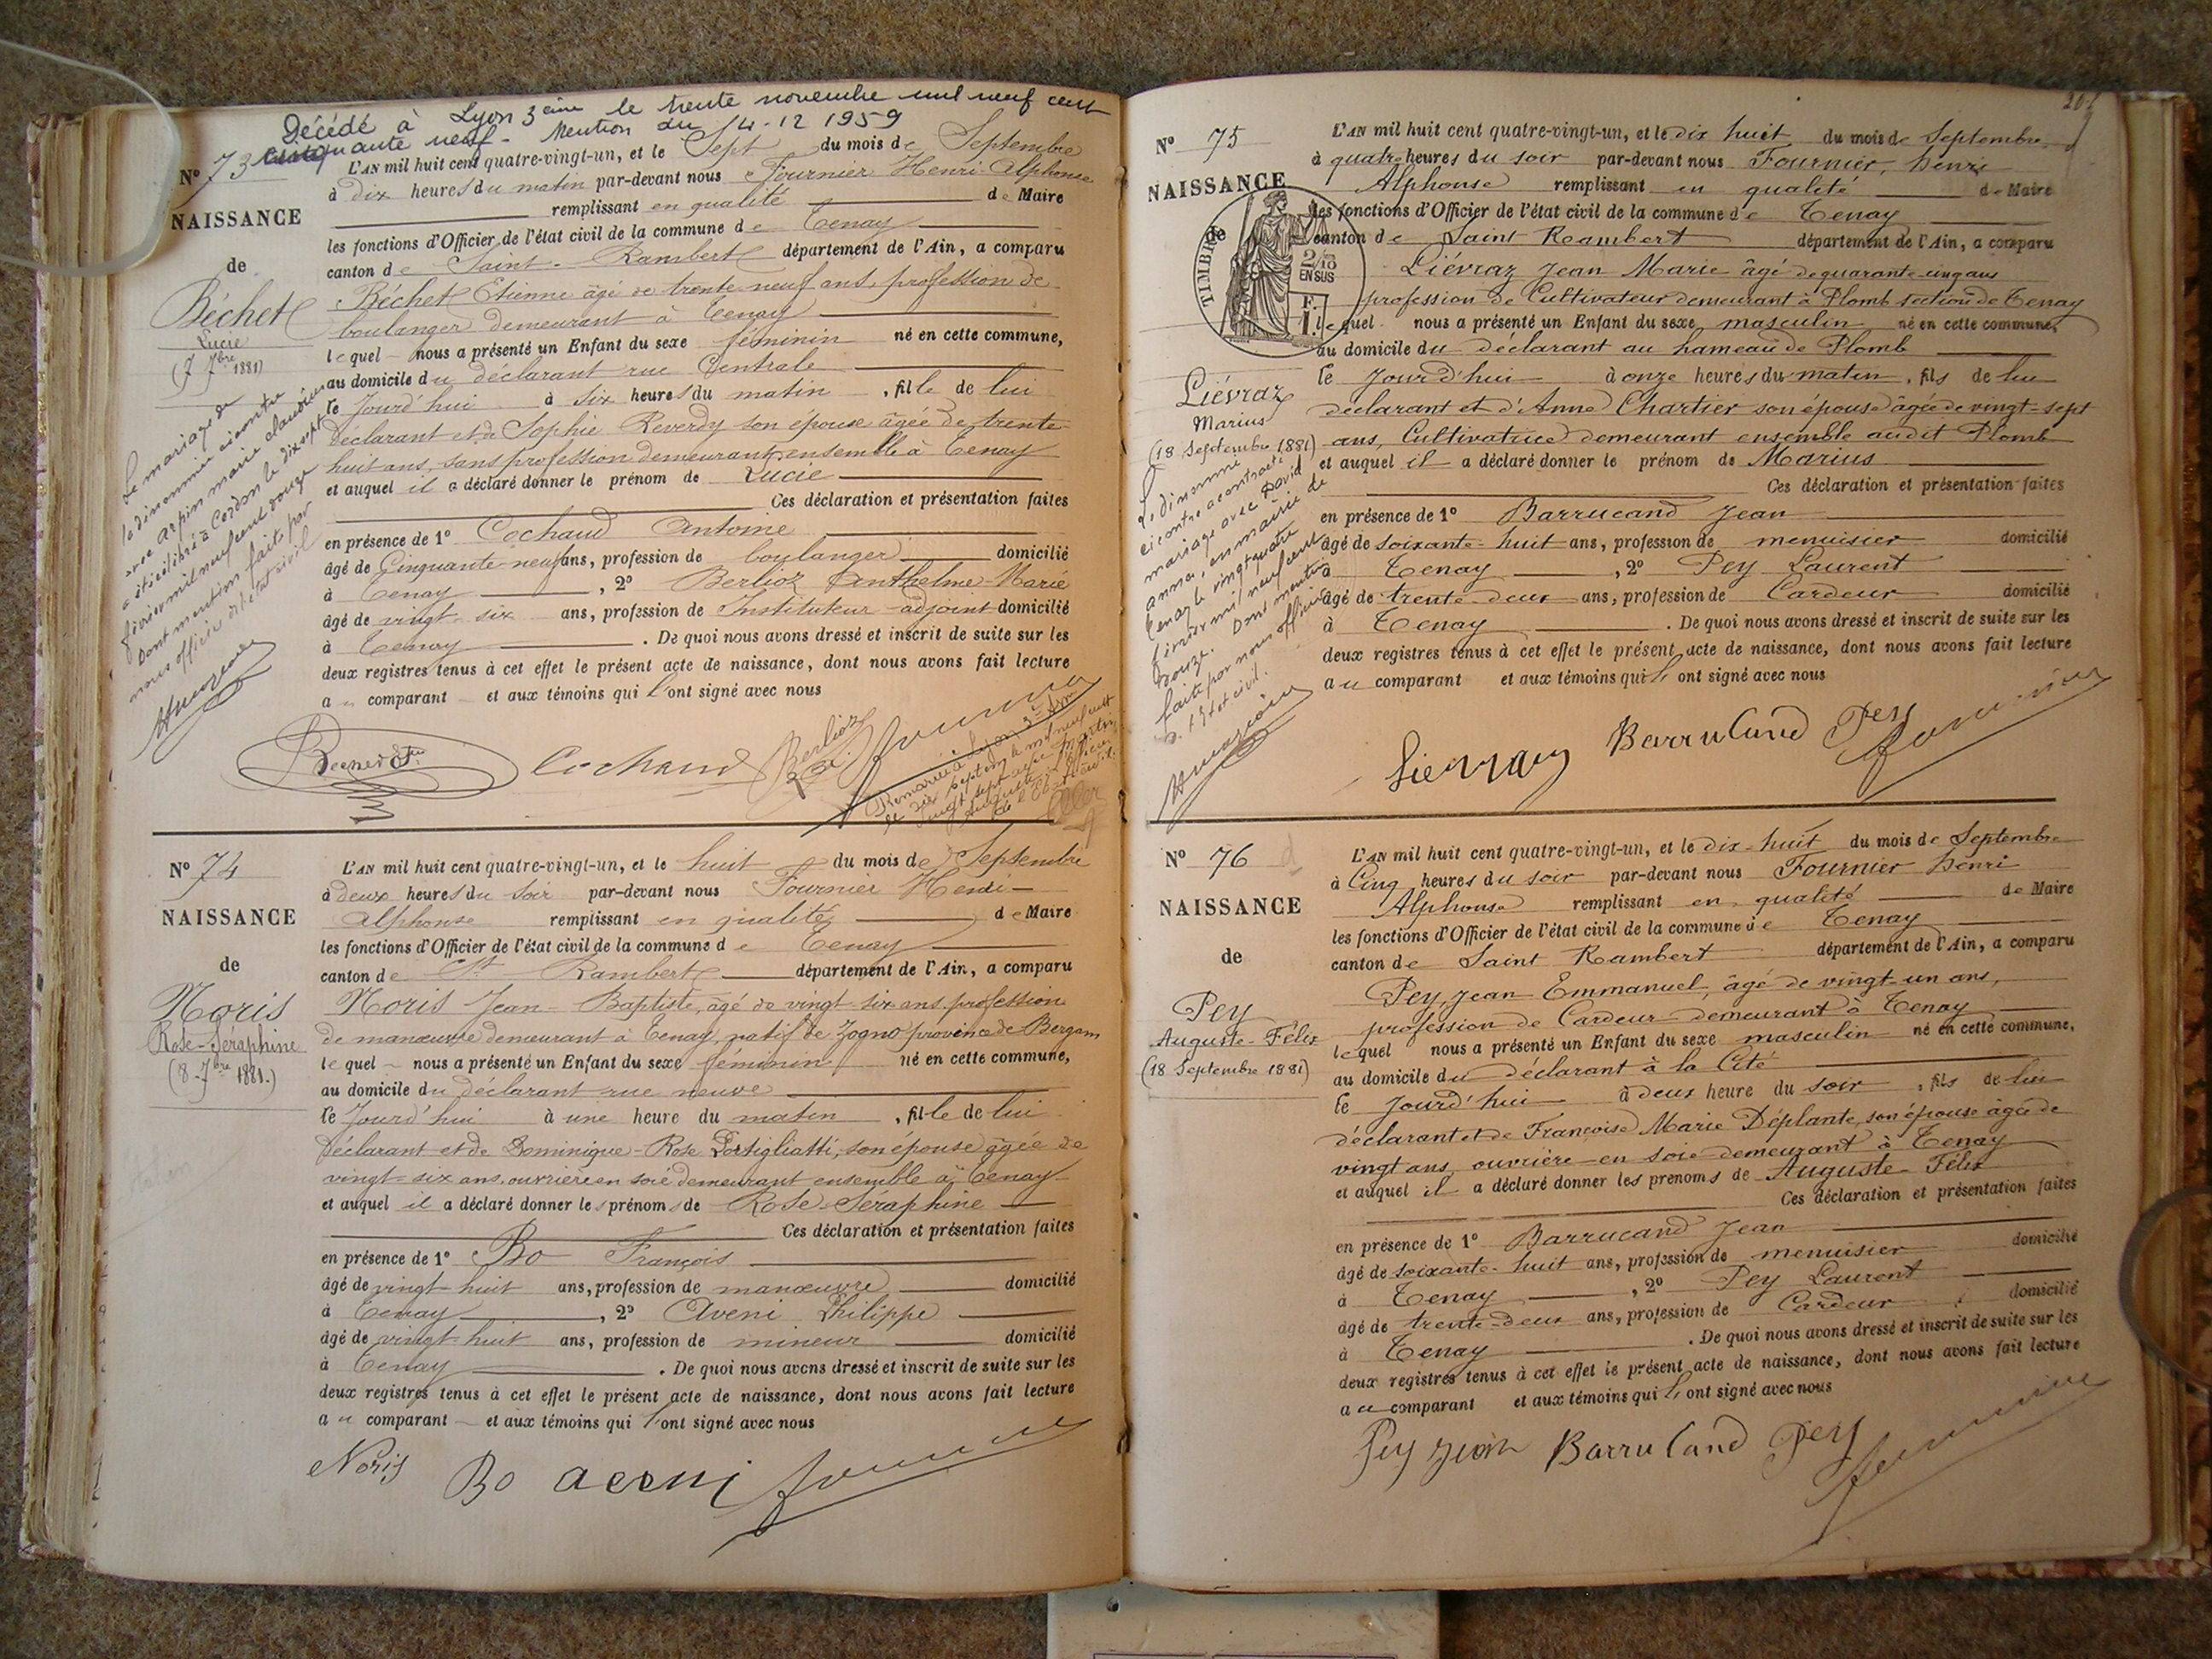 Décédé à Lyon 3ème le trente novembre mil neuf cent
cinquante neuf - Mention du 14-12 1959
N° 73
NAISSANCE
de
Béchet
Lucie
(7 7bre 1881)
Le mariage de
la dénommée ci contre
avec Arpin marie claudius
a été célébré à Cordon le dix sept
février mil neuf cent douze
Dont mention fait par
nous officier de l'état civil
L'AN mil huit cent quatre-vingt-un, et le Sept du mois de Septembre
à dix heures du matin par-devant nous Fournier Henri-Alphonse
remplissant en qualité de Maire
les fonctions d'Officier de l'état civil de la commune de Tenay
canton de Saint-Rambert département de l'Ain, a comparu
Béchet Etienne âgé de trente-neuf ans, profession de
boulanger demeurant à Tenay
lequel nous a présenté un Enfant du sexe féminin né en cette commune,
au domicile du déclarant rue Centrale
le Jourd'hui à six heures du matin, fille de lui
déclarant et de Sophie Reverdy son épouse âgée de trente-
huit ans, sans profession demeurant ensemble à Tenay
et auquel il a déclaré donner le prénom de Lucie
Ces déclaration et présentation faites
en présence de 1° Cochaud Antoine
âgé de Cinquante-neuf ans, profession de boulanger domicilié
à Tenay, 2° Berlioz Anthelme-Marie
âgé de vingt-six ans, profession de Instituteur-adjoint domicilié
à Tenay. De quoi nous avons dressé et inscrit de suite sur les
deux registres tenus à cet effet le présent acte de naissance, dont nous avons fait lecture
au comparant et aux témoins qui l'ont signé avec nous
Cochaud Berlioz Fournier
Remariée à Lyon 3e
le dix septembre mil neuf cent
vingt sept avec
N° 74
NAISSANCE
de
Noris
Rose-Séraphine
(8 7bre 1881.)
L'AN mil huit cent quatre-vingt-un, et le huit du mois de Septembre
à deux heures du soir par-devant nous Fournier Henri-
Alphonse remplissant en qualité de Maire
les fonctions d'Officier de l'état civil de la commune de Tenay
canton de St Rambert département de l'Ain, a comparu
Noris Jean-Baptiste, âgé de vingt-six ans profession
de manœuvre demeurant à Tenay, natif de Zogno province de Bergam
lequel nous a présenté un Enfant du sexe féminin né en cette commune,
au domicile du déclarant rue neuve
le Jourd'hui à une heure du matin, fille de lui
Déclarant et de Dominique-Rose Portigliatti, son épouse âgée de
vingt-six ans, ouvrière en soie demeurant ensemble à Tenay
et auquel il a déclaré donner les prénoms de Rose-Séraphine
Ces déclaration et présentation faites
en présence de 1° Bo François
âgé de vingt-huit ans, profession de manœuvre domicilié
à Tenay, 2° Aveni Philippe
âgé de vingt-huit ans, profession de mineur domicilié
à Tenay. De quoi nous avons dressé et inscrit de suite sur les
deux registres tenus à cet effet le présent acte de naissance, dont nous avons fait lecture
au comparant et aux témoins qui l'ont signé avec nous
Noris Bo Fournier
N° 75
NAISSANCE
de
TIMBRE
2/10
EN SUS
Liévraz
Marius
(18 Septembre 1881)
Le dénommé
ci contre a contracté
mariage avec David
anna, en mairie de
Tenay le vingt quatre
février mil neuf cent
Dont mention
faite par nous officier
d. l'état civil.
L'AN mil huit cent quatre-vingt-un, et le dix huit du mois de Septembre
à quatre heures du soir par-devant nous Fournier, Henri
Alphonse remplissant en qualité de Maire
les fonctions d'Officier de l'état civil de la commune de Tenay
canton de Saint Rambert département de l'Ain, a comparu
Liévraz Jean Marie âgé de quarante-un ans
profession de Cultivateur demeurant à Plomb section de Tenay
lequel nous a présenté un Enfant du sexe masculin né en cette commune,
au domicile du déclarant au hameau de Plomb
le Jourd'hui à onze heures du matin, fils de lui
déclarant et d'Anne Chartier son épouse âgée de vingt-sept
ans, Cultivatrice demeurant ensemble audit Plomb
et auquel il a déclaré donner le prénom de Marius
Ces déclaration et présentation faites
en présence de 1° Barrucand Jean
âgé de soixante-huit ans, profession de menuisier domicilié
à Tenay, 2° Pey Laurent
âgé de trente-deux ans, profession de Cardeur domicilié
à Tenay. De quoi nous avons dressé et inscrit de suite sur les
deux registres tenus à cet effet le présent acte de naissance, dont nous avons fait lecture
au comparant et aux témoins qui l'ont signé avec nous
Barrucand Pey Fournier
N° 76
NAISSANCE
de
Pey
Auguste-Félix
(18 Septembre 1881)
L'AN mil huit cent quatre-vingt-un, et le dix-huit du mois de Septembre
à Cinq heures du soir par-devant nous Fournier Henri
Alphonse remplissant en qualité de Maire
les fonctions d'Officier de l'état civil de la commune de Tenay
canton de Saint Rambert département de l'Ain, a comparu
Pey, Jean Emmanuel, âgé de vingt-un ans,
profession de Cardeur demeurant à Tenay
lequel nous a présenté un Enfant du sexe masculin né en cette commune,
au domicile du déclarant à la Cité
le Jourd'hui à deux heure du soir, fils de lui
déclarant et de Françoise Marie Déplante, son épouse âgée de
vingt ans, ouvrière en soie demeurant à Tenay
et auquel il a déclaré donner les prénoms de Auguste-Félix
Ces déclaration et présentation faites
en présence de 1° Barrucand Jean
âgé de soixante-huit ans, profession de menuisier domicilié
à Tenay, 2° Pey Laurent
âgé de trente-deux ans, profession de Cardeur domicilié
à Tenay. De quoi nous avons dressé et inscrit de suite sur les
deux registres tenus à cet effet le présent acte de naissance, dont nous avons fait lecture
au comparant et aux témoins qui l'ont signé avec nous
Pey Jean Barrucand Pey Fournier